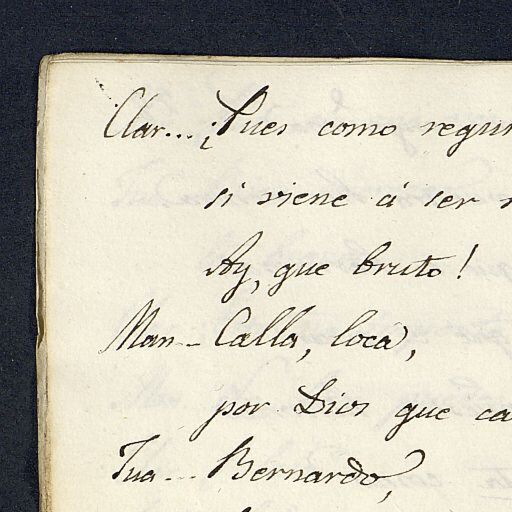 Clar... ¡Pues como
si viene á ser
Ay, que bruto!
Man.. Calla, loca,
por Dios que
Jua... Bernardo,